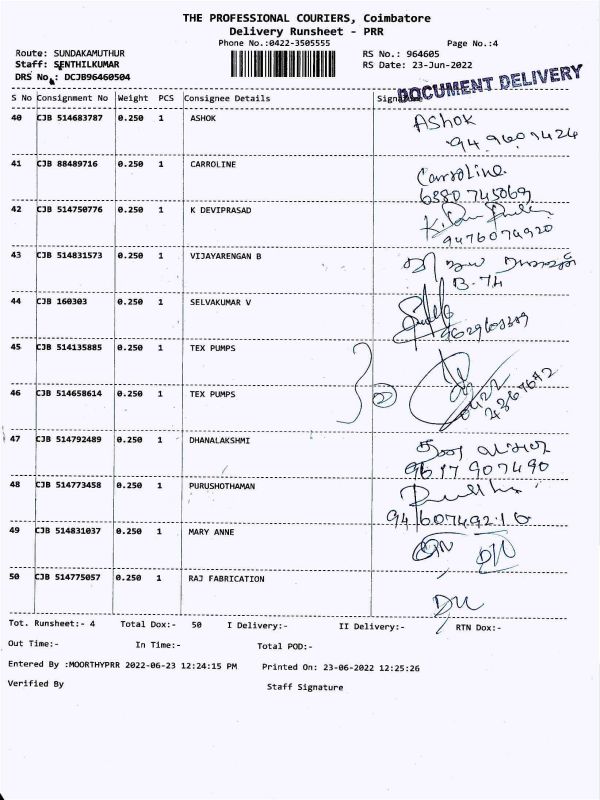 THE PROFESSIONAL COURIERS, Coimbatore
Delivery Runsheet - PRR
Phone No.:0422-3505555 Page No.:4
Route: SUNDAKAMUTHUR RS No.: 964605
Staff: SENTHILKUMAR RS Date: 23-Jun-2022
DRS No.: DCJB96460504
DOCUMENT DELIVERY
S No Consignment No Weight PCS Consignee Details Signature
40 CJB 514683787 0.250 1 ASHOK Ashok
41 CJB 88489716 0.250 1 CARROLINE Carroline
6380 745069
42 CJB 514750776 0.250 1 K DEVIPRASAD
9476074920
43 CJB 514831573 0.250 1 VIJAYARENGAN B
B-74
44 CJB 160303 0.250 1 SELVAKUMAR V
45 CJB 514135885 0.250 1 TEX PUMPS
2
46 CJB 514658614 0.250 1 TEX PUMPS
0422
47 CJB 514792489 0.250 1 DHANALAKSHMI
9617 907490
48 CJB 514773458 0.250 1 PURUSHOTHAMAN
49 CJB 514831037 0.250 1 MARY ANNE
50 CJB 514775057 0.250 1 RAJ FABRICATION
Tot. Runsheet:- 4 Total Dox:- 50 I Delivery:- II Delivery:- RTN Dox:-
Out Time:- In Time:- Total POD:-
Entered By :MOORTHYPRR 2022-06-23 12:24:15 PM Printed On: 23-06-2022 12:25:26
Verified By Staff Signature